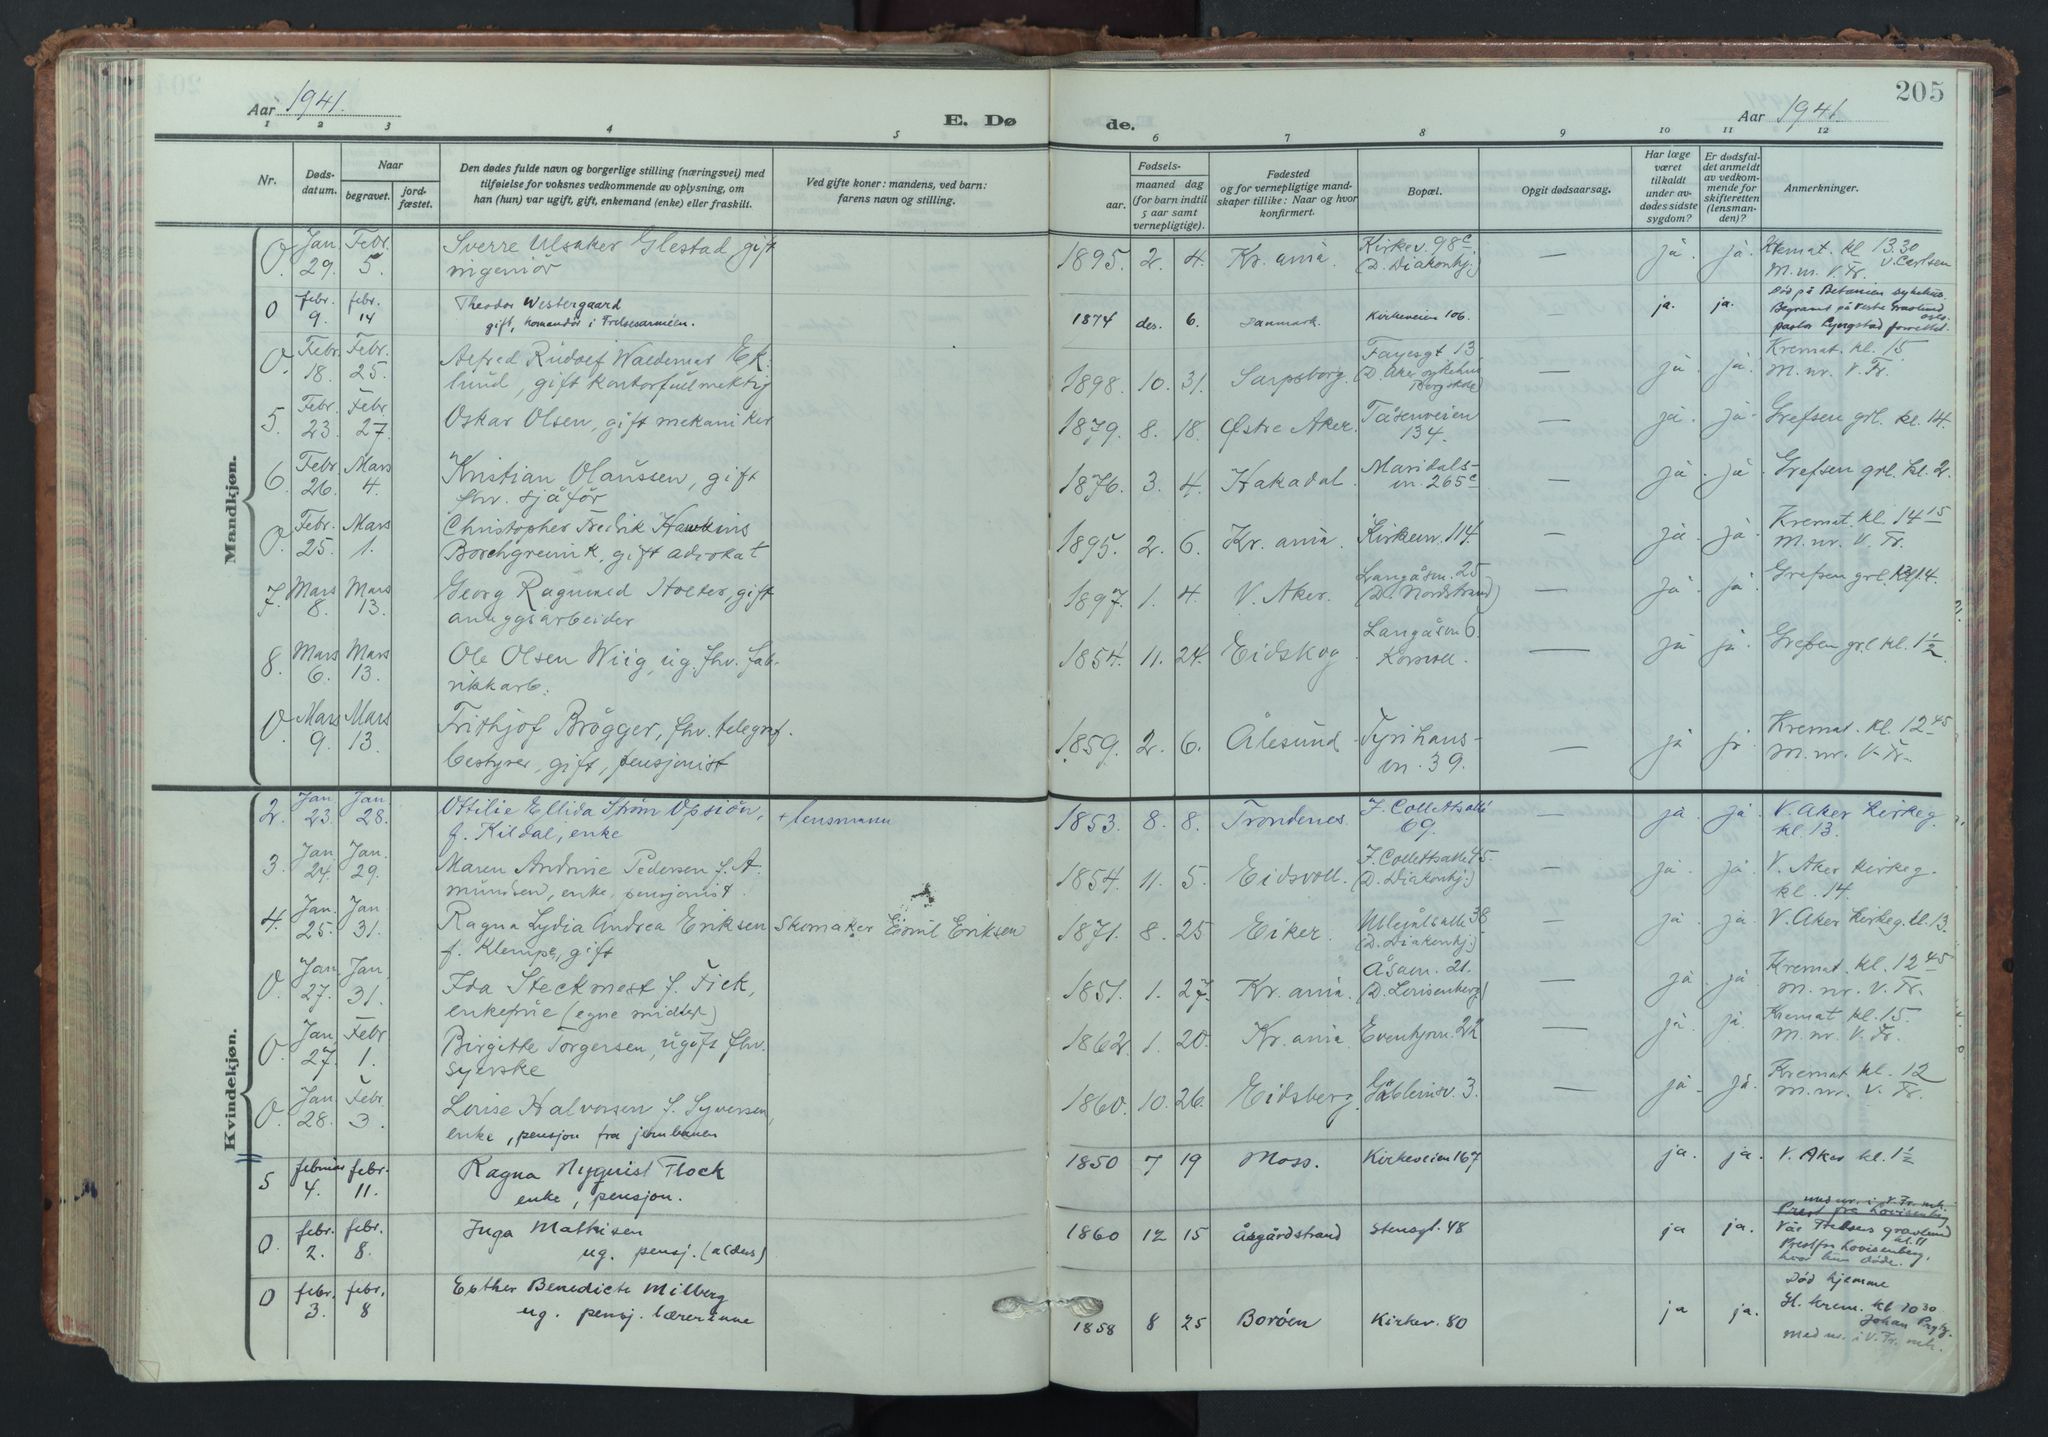 205
Aar 1941.
E. Dø
de.
Aar 1941.
1 2 3 4 5 6 7 8 9 10 11 12
Nr.
Døds-
datum.
Naar
begravet.
jord-
fæstet.
Den dødes fulde navn og borgerlige stilling (næringsvei) med
tilføielse for voksnes vedkommende av oplysning, om
han (hun) var ugift, gift, enkemand (enke) eller fraskilt.
Ved gifte koner: mandens, ved barn:
farens navn og stilling.
Fødsels-
aar.
maaned dag
(for barn indtil
5 aar samt
vernepligtige).
Fødested
og for vernepligtige mand-
skaper tillike: Naar og hvor
konfirmert.
Bopæl.
Opgit dødsaarsag.
Har læge
været
tilkaldt
under av-
dødes sidste
sygdom?
Er dødsfal-
det anmeldt
av vedkom-
mende for
skifteretten
(lensman-
den)?
Anmerkninger.
Mandkjøn.
0. Jan. 29. Febr. 5. Sverre Ulsaker Glestad gift
ingeniör
1895. 2. 4. Kr.ania. Kirkev. 98c
(D. Diakonhj.) — ja. ja. Kremat. kl 13.30
M.m. V. Fr. v. Carlsen
0 febr. 9. febr. 14 Theodor Westergaard
gift, komandør i Frelsesarméen.
1874 des. 6. Danmark. Kirkeveien 106. — ja. ja. Død på Betanien sykehus.
Begravet på Vestre Gravlund
oslo
pastor Lyngstad forrettet.
0. Febr. 18. Febr. 25. Alfred Rudolf Waldemar Ek-
lund, gift kontorfullmektig
1898. 10. 31. Sarpsborg. Fayesgt 13
(D. Aker sykehus — ja. ja. Kremat. kl. 15.
M.nr. V. Fr.
5. Febr. 23. Febr. 27. Oskar Olsen, gift mekaniker
1879. 8. 18. Østre Aker. Tåsenveien
134. — ja. ja. Grefsen grl. kl. 14.
6. Febr. 26. Mars 4. Kristian Olaussen, gift
fhv. sjåför
1876. 3. 4. Hakadal. Maridals-
vn. 265c — ja. ja. Grefsen grl. kl. 2.
0. Febr. 25. Mars 1. Christopher Fredrik Hawkins
Borchgrevink, gift advokat
1895. 2. 6. Kr.ania. Kirkevn. 114. — ja. ja. Kremat. kl. 14 15
M.nr. V. Fr.
7. Mars 8. Mars 13. Georg Ragnvald Holter, gift
anleggsarbeider
1897. 1. 4. V. Aker. Langåsvn. 25
(D. Nordstrand) — ja. ja. Grefsen grl. kl 14.
8. Mars 6. Mars 13. Ole Olsen Wiig, ug. fhv. fab-
rikkarb.
1854. 11. 24. Eidskog. Langåsvn 6.
Korsvoll. — ja. ja. Grefsen grl kl. 1 1/2.
0. Mars 9. Mars 13. Frithjof Brøgger, fhv. telegraf-
bestyrer, gift, pensjonist
1859. 2. 6. Ålesund Tyrihans-
vn. 39. — ja ja Kremat. kl. 12 45
M.nr. V. Fr.
Kvindekjøn.
2. Jan 23. Jan 28. Ottilie Ellida Strøm Opsiön,
f. Kildal, enke + lensmann
1853. 8. 8. Trondenes. J. Collettsallé
69. — ja. ja. V. Aker kirkeg.
kl. 13.
3. Jan 24. Jan 29. Maren Andrine Pedersen f. A-
mundsen, enke, pensjonist.
1854. 11. 5. Eidsvoll. J. Collettsalle 45.
(D. Diakonhj.) — ja. ja. V. Aker kirkeg.
kl. 14.
4. Jan 25. Jan 31. Ragna Lydia Andrea Eriksen
f. Klempe, gift Skomaker Emil Eriksen
1871. 8. 25 Eiker. Ullevålsalle 38
(D. Diakonhj.) — ja. ja. V. Aker kirkeg. kl. 13.
0. Jan. 27. Jan 31. Ida Steckmest f. Fick,
enkefrue (egne midler)
1851. 1. 27. Kr.ania. Åsavn. 21.
(D. Lovisenberg) — ja. ja. Kremat. kl. 12 45
M.nr. V. Fr.
0. Jan 27. Febr 1. Birgitte Torgersen, ugift fhv.
syerske
1862. 1. 20. Kr.ania. — ja. ja. Kremat kl. 15
M.nr. V. Fr.
0. Jan 28. Febr 3. Lovise Halvorsen f. Syversen,
enke, pensjon fra jernbanen
1860. 10. 26. Eidsberg. 3. — ja. ja. Kremat kl. 12
M.nr. V. Fr.
5 februar 4. febr. 11. Ragna Nyquist Flock
enke, pensjon.
1850 7 19 Moss. Kirkeveien 167 ja. ja. V. Aker kl. 1 1/2
0 febr. 2. febr. 8. Inga Mathisen
ug. pensj. (alders)
1860 12 15 Åsgårdstrand Stensgt. 48 ja ja. med nr. i V. Fr. mk.
Prest fra Lovisenberg
Vår Frelsers gravlund
kl. 11
Prest fra Lovisenberg,
hvor hun døde.
0 febr. 3. febr. 8 Esther Benedicte Milberg
ug. pensj. lærerinne
1858 8 25 Borøen Kirkev. 80 ja ja. Død hjemme
H. krem. kl 10 30
Johan
Med nr. i V. Fr. mk.